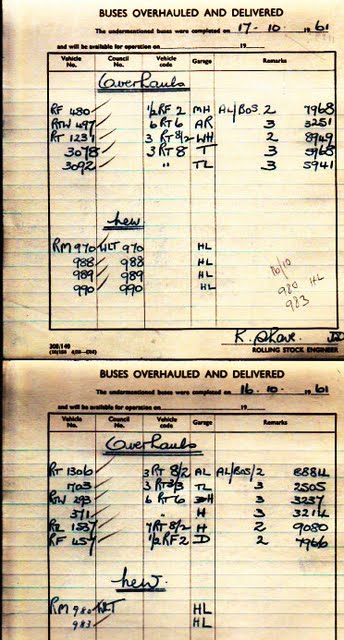 BUSES OVERHAULED AND DELIVERED
The undermentioned buses were completed on 17-10- 1961
and will be available for operation on 19
Vehicle No. Council No. Vehicle code Garage Remarks
Overhauls
RF 480 1/2 RF 2 MH AL/BOS 2 7968
RTW 497 6 RT6 AR 3 3251
RT 1237 3 RT 8/2 WH 2 8949
3078 3 RT 8 T 3
3092 " TL 3 5941
New
RM 970 WLT 970 HL
988 988 HL
989 989 HL
990 990 HL
16/10
980 HL
983
K. Shave
ROLLING STOCK ENGINEER
BUSES OVERHAULED AND DELIVERED
The undermentioned buses were completed on 16-10- 1961
and will be available for operation on 19
Vehicle No. Council No. Vehicle code Garage Remarks
Overhauls
RT 1306 3 RT 8/2 AL AL/BOS/2 8884
1703 3 RT 3/3 TL 3 2505
RTW 293 6 RT6 H 3 3237
371 " H 3 3214
1537 7 RT 8/2 H 2 9080
RF 457 1/2 RF 2 D 2 7966
New.
RM 980 WLT HL
983 HL